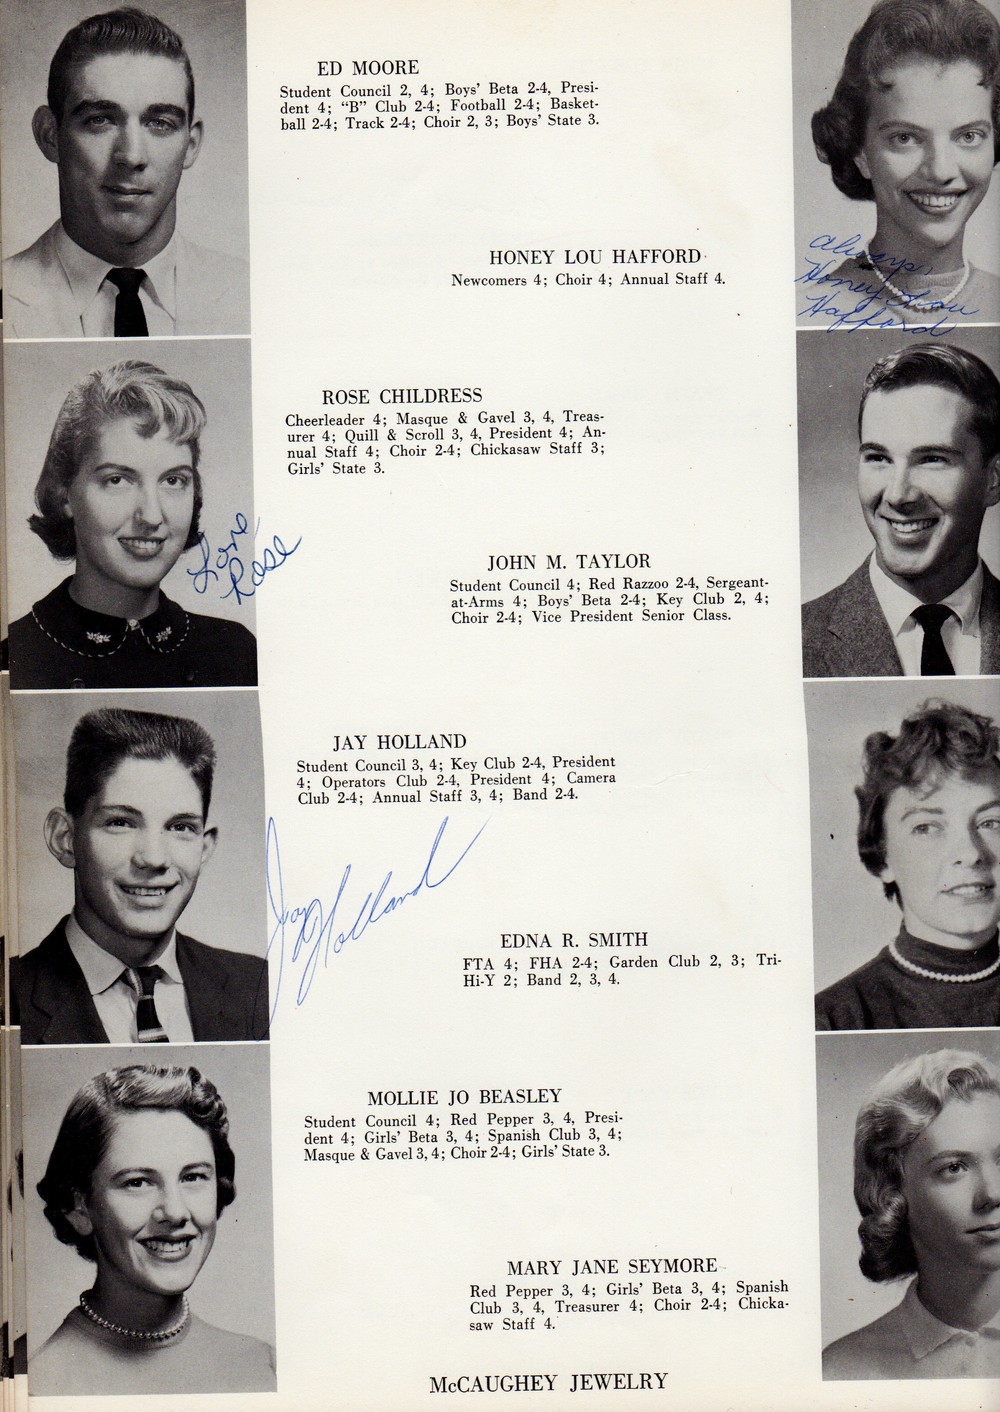 ED MOORE
Student Council 2, 4; Boys' Beta 2-4, Presi-
dent 4; "B" Club 2-4; Football 2-4; Basket-
ball 2-4; Track 2-4; Choir 2, 3; Boys' State 3.
HONEY LOU HAFFORD
Newcomers 4; Choir 4; Annual Staff 4.
Always,
Honey Lou
Hafford
ROSE CHILDRESS
Cheerleader 4; Masque & Gavel 3, 4, Treas-
urer 4; Quill & Scroll 3, 4, President 4; An-
nual Staff 4; Choir 2-4; Chickasaw Staff 3;
Girls' State 3.
Love
Rose
JOHN M. TAYLOR
Student Council 4; Red Razzoo 2-4, Sergeant-
at-Arms 4; Boys' Beta 2-4; Key Club 2, 4;
Choir 2-4; Vice President Senior Class.
JAY HOLLAND
Student Council 3, 4; Key Club 2-4, President
4; Operators Club 2-4, President 4; Camera
Club 2-4; Annual Staff 3, 4; Band 2-4.
Jay Holland
EDNA R. SMITH
FTA 4; FHA 2-4; Garden Club 2, 3; Tri-
Hi-Y 2; Band 2, 3, 4.
MOLLIE JO BEASLEY
Student Council 4; Red Pepper 3, 4, Presi-
dent 4; Girls' Beta 3, 4; Spanish Club 3, 4;
Masque & Gavel 3, 4; Choir 2-4; Girls' State 3.
MARY JANE SEYMORE
Red Pepper 3, 4; Girls' Beta 3, 4; Spanish
Club 3, 4, Treasurer 4; Choir 2-4; Chicka-
saw Staff 4.
McCAUGHEY JEWELRY